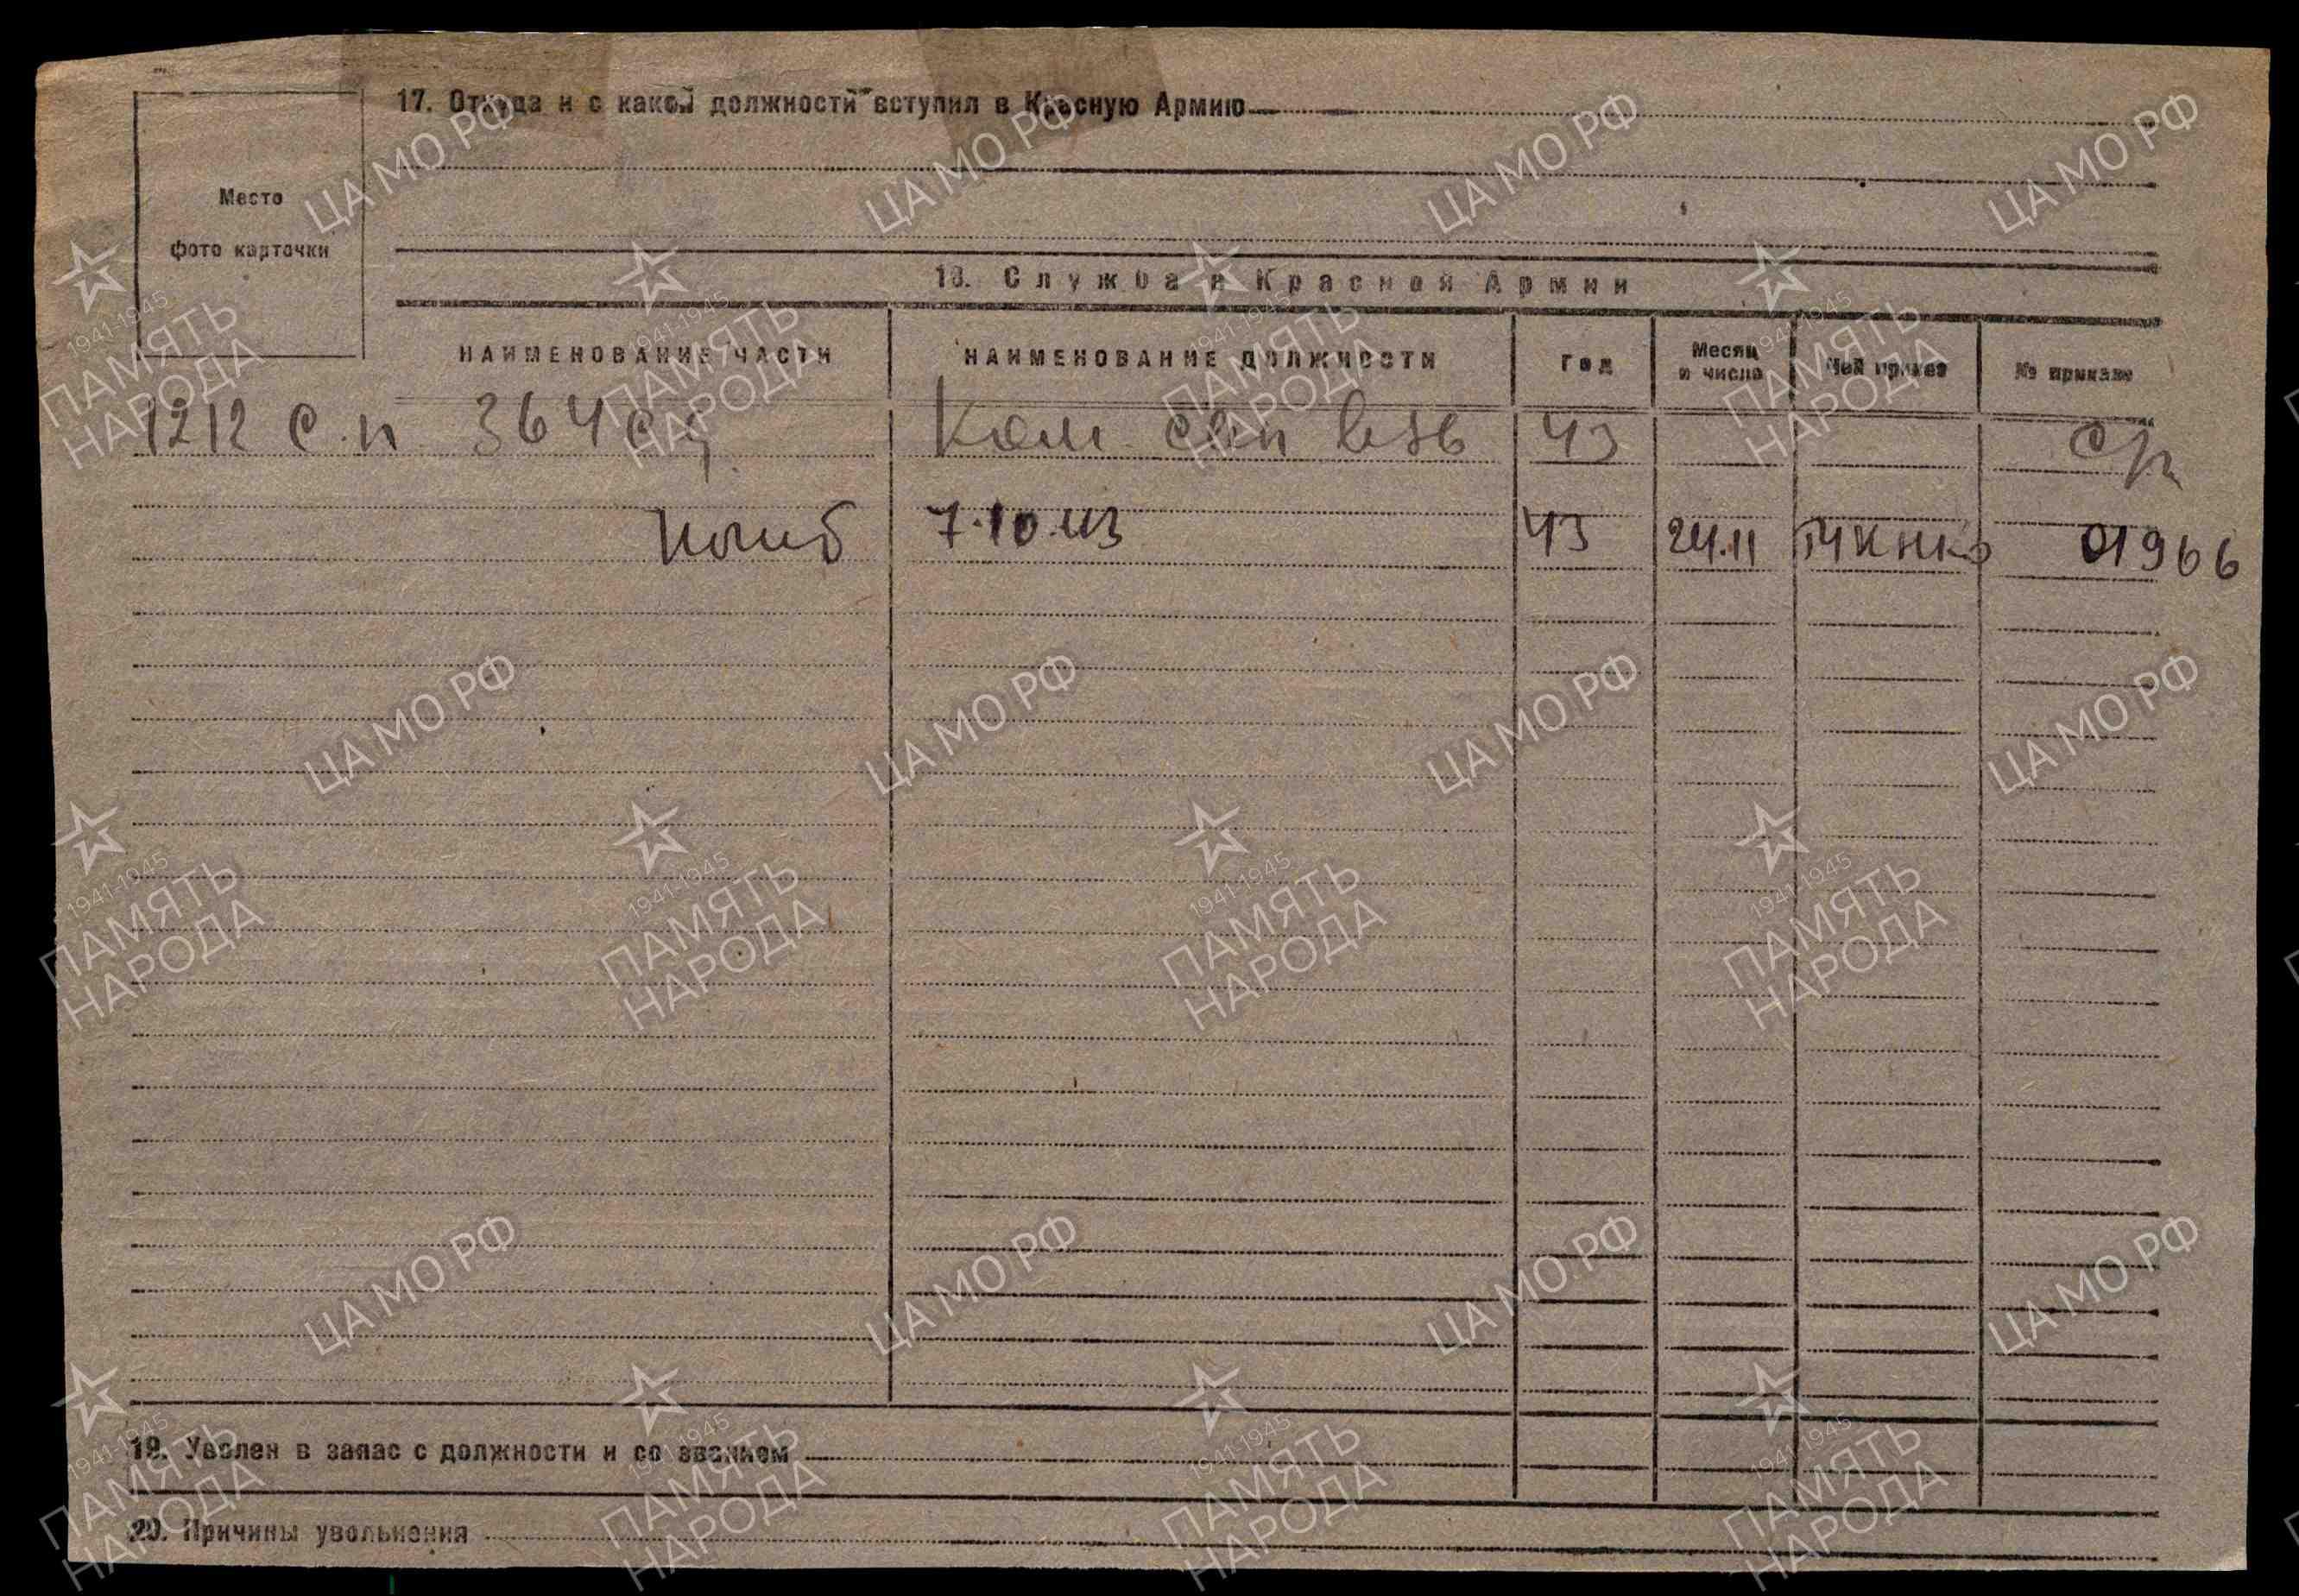 17. Откуда и с какой должности вступил в Красную Армию
Место
фото карточки
18. Служба в Красной Армии
НАИМЕНОВАНИЕ ЧАСТИ НАИМЕНОВАНИЕ ДОЛЖНОСТИ Год Месяц и число Чей приказ № приказа
1212 с.п 364 сд Ком сап взв 43
погиб 7.10.43 43 24.11 01966
19. Уволен в запас с должности и со званием
20. Причины увольнения
ЦА МО РФ
1941-1945
ПАМЯТЬ
НАРОДА